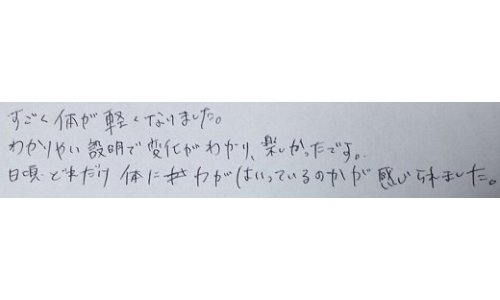 すごく体が軽くなりました。
わかりやい説明で変化がわかり、楽しかったです。
日頃どれだけ体に わがはいっているのかが感じられました。